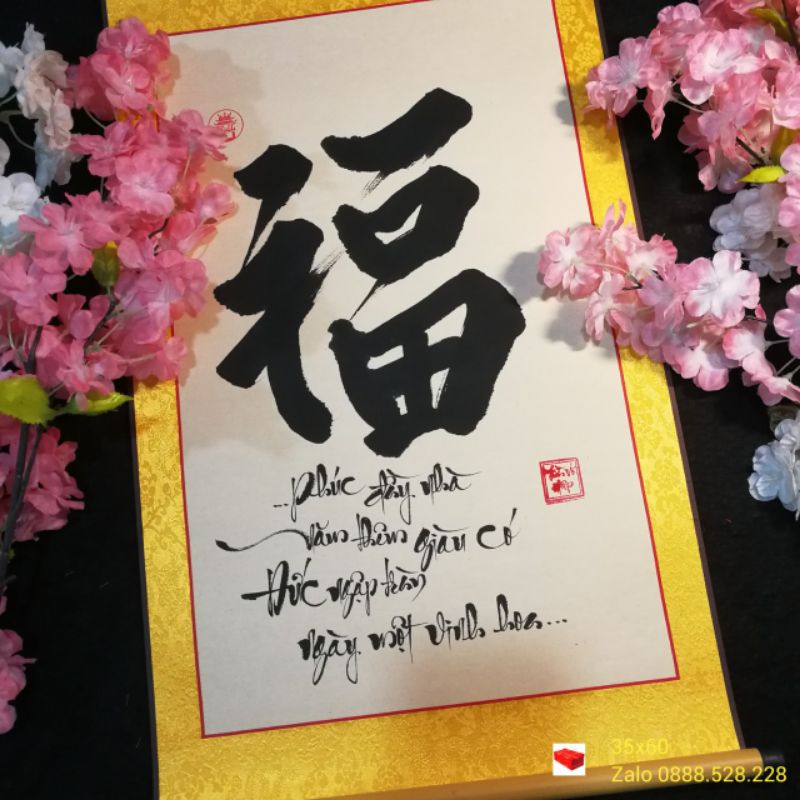 福
...Phúc đầy nhà
năm thêm giàu có
Đức ngập tràn
ngày một vinh hoa...
35x60
Zalo 0888.528.228